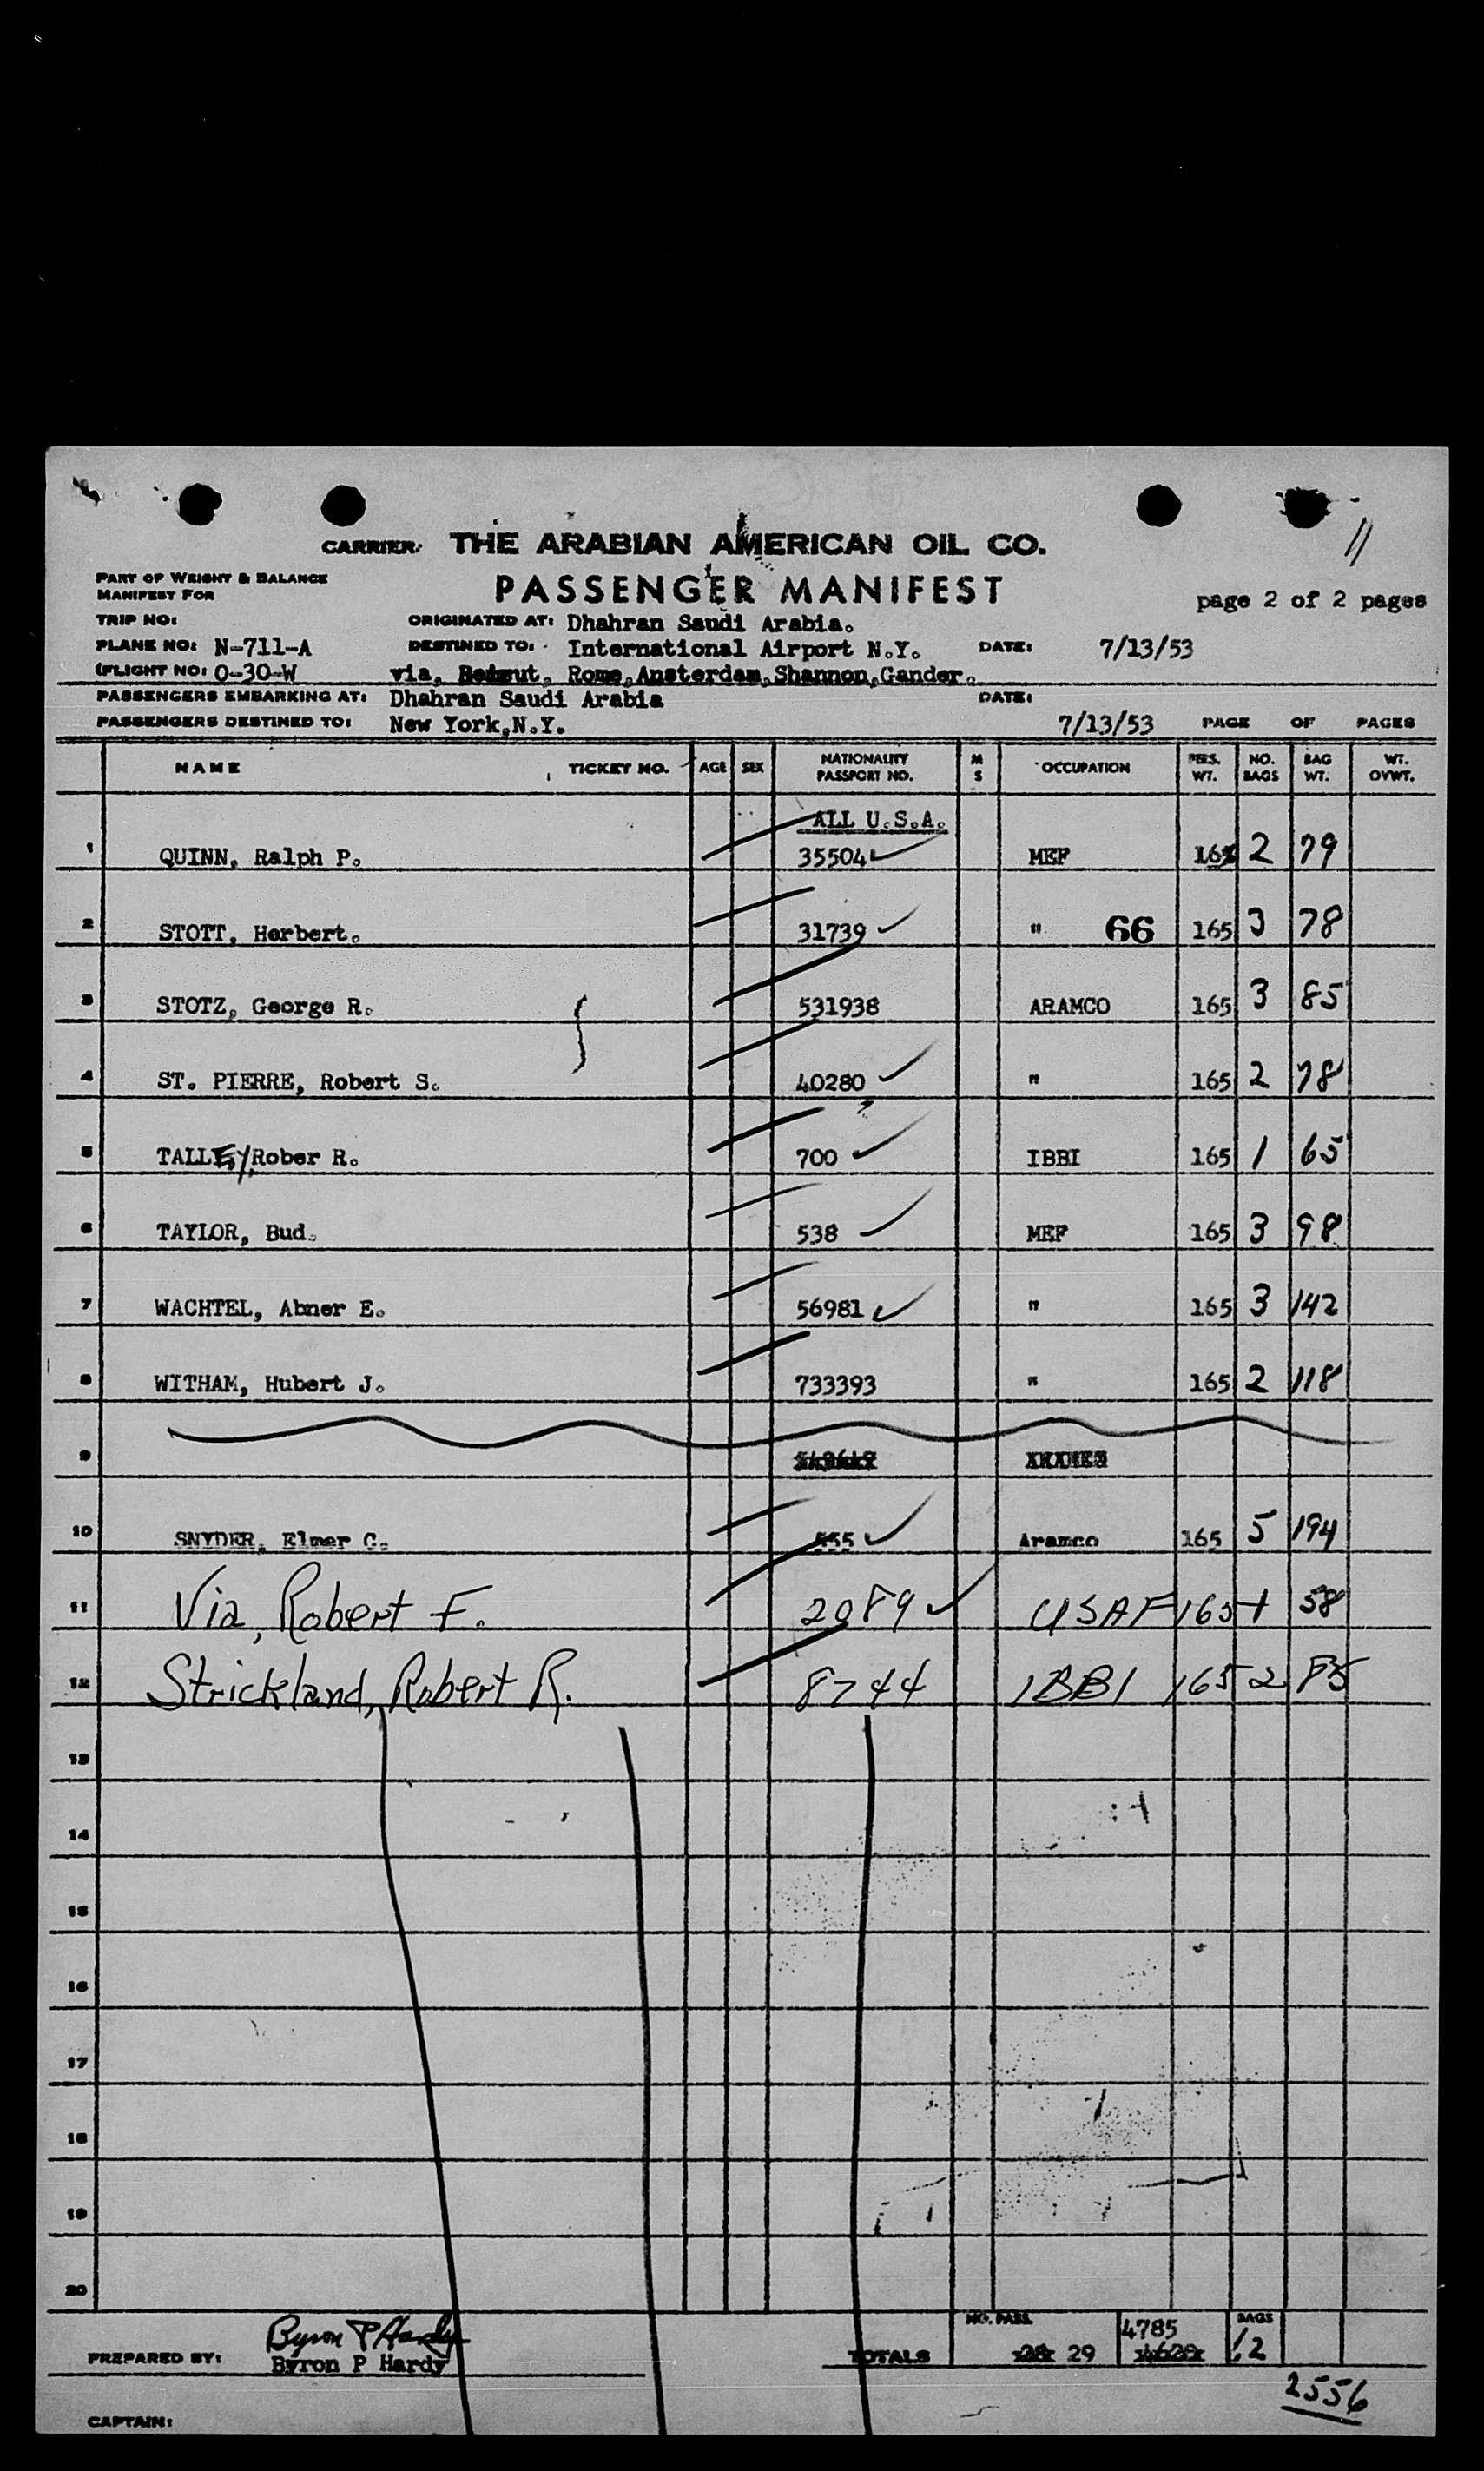 11
CARRIER: THE ARABIAN AMERICAN OIL CO.
PART OF WEIGHT & BALANCE
MANIFEST FOR
PASSENGER MANIFEST
page 2 of 2 pages
TRIP NO:
ORIGINATED AT: Dhahran Saudi Arabia.
PLANE NO: N-711-A DESTINED TO: International Airport N.Y. DATE: 7/13/53
(FLIGHT NO: O-30-W via, Beirut, Rome,Amsterdam,Shannon,Gander.
PASSENGERS EMBARKING AT: Dhahran Saudi Arabia DATE:
PASSENGERS DESTINED TO: New York,N.Y. 7/13/53 PAGE OF PAGES
NAME TICKET NO. AGE SEX NATIONALITY PASSPORT NO. M S OCCUPATION PERS. WT. NO. BAGS BAG WT. WT. OVWT.
ALL U.S.A.
1 QUINN, Ralph P. 35504 MEF 165 2 79
2 STOTT, Herbert. 31739 " 66 165 3 78
3 STOTZ, George R. 531938 ARAMCO 165 3 85
4 ST. PIERRE, Robert S. 40280 " 165 2 78
5 TALLEY, Rober R. 700 IBBI 165 1 65
6 TAYLOR, Bud. 538 MEF 165 3 98
7 WACHTEL, Abner E. 56981 " 165 3 142
8 WITHAM, Hubert J. 733393 " 165 2 118
9
10 SNYDER, Elmer C. 555 Aramco 165 5 194
11 Via, Robert F. 2089 USAF 165 1 58
12 Strickland, Robert R. 8744 IBBI 165 2 85
13
14
15
16
17
18
19
20
Byron P Hardy
PREPARED BY: Byron P Hardy TOTALS NO. PASS. 29 4785 BAGS 12
2556
CAPTAIN: